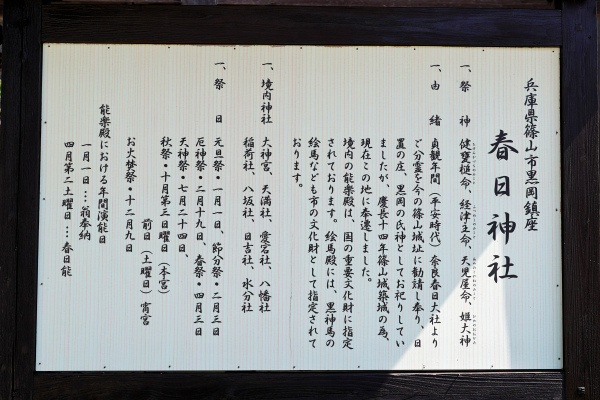 兵庫県篠山市黒岡鎮座
春日神社
一、祭　神　健甕槌命、経津主命、天児屋命、姫大神
一、由　緒　貞観年間（平安時代）奈良春日大社より
ご分霊を今の篠山城址に勧請し奉り、日
置の庄、黒岡の氏神としてお祀りしてい
ましたが、慶長十四年篠山城築城の為、
現在この地に奉遷しました。
境内の能楽殿は、国の重要文化財に指定
されております。絵馬殿には、黒神馬の
絵馬なども市の文化財として指定されて
おります。
一、境内神社　大神宮、天満社、愛宕社、八幡社
稲荷社、八坂社、日吉社、水分社
一、祭　日　元旦祭・一月一日、節分祭・二月三日
厄神祭・二月十九日、春祭・四月三日
天神祭・七月二十四日、
秋祭・十月第三日曜日（本宮）
前日（土曜日）宵宮
お火焚祭・十二月九日
能楽殿における年間演能日
一月一日…翁奉納
四月第二土曜日…春日能